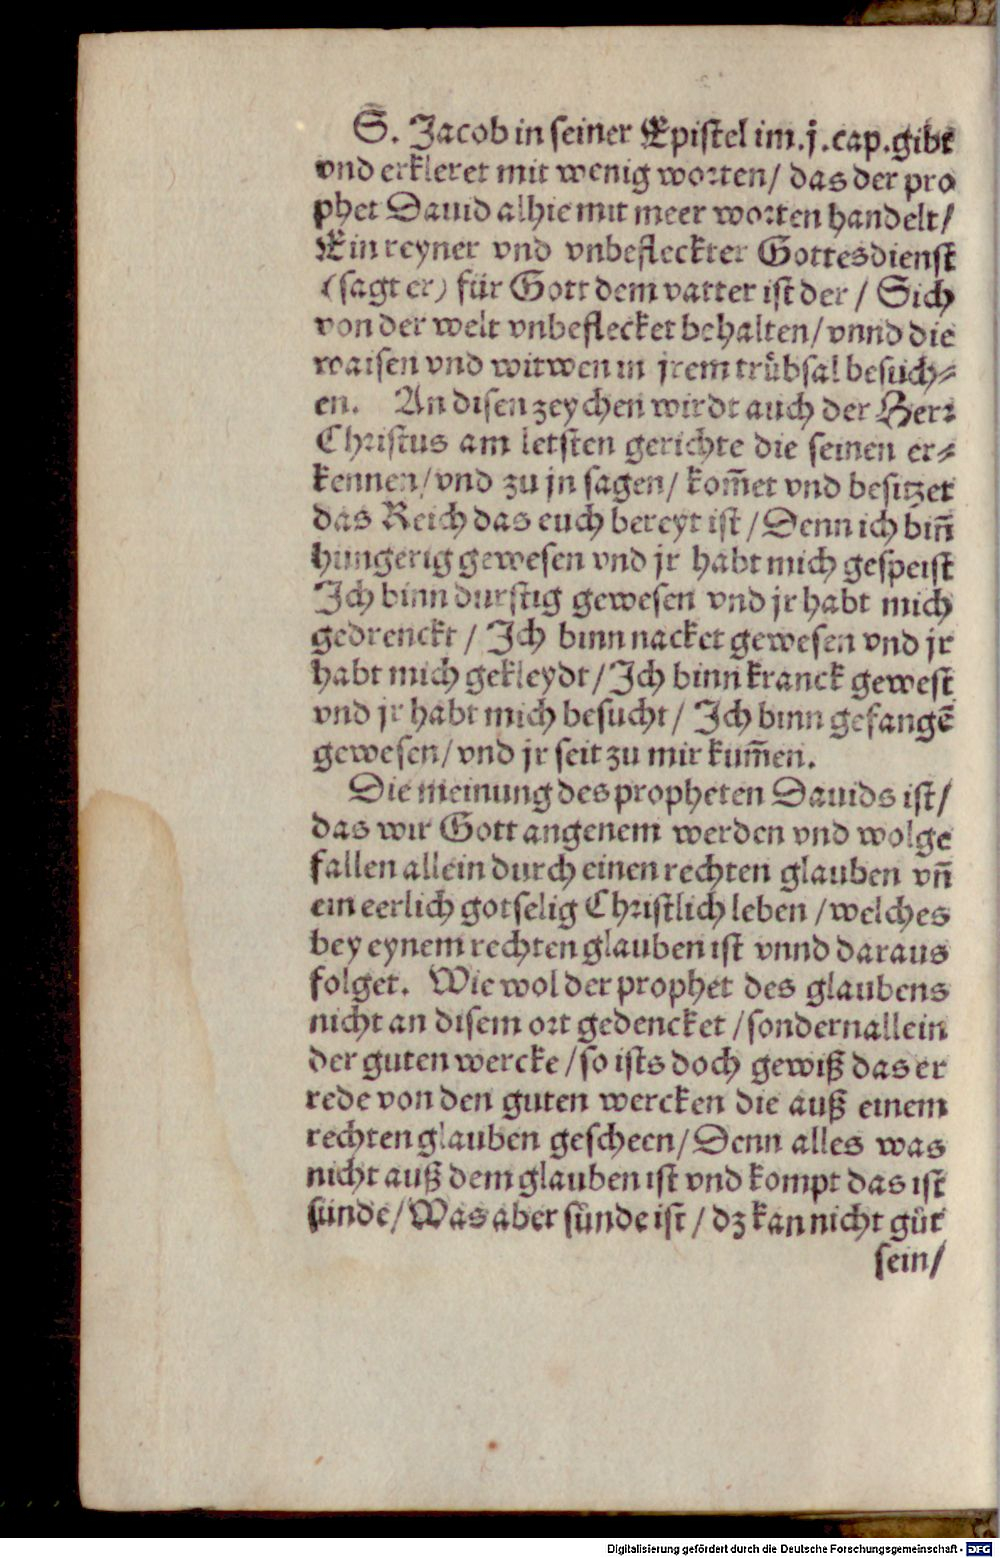 S. Jacob in seiner Epistel im.j.cap.gibt
vnd erkleret mit wenig worten/ das der pro
phet Dauid alhie mit meer worten handelt/
Ein reyner vnd vnbefleckter Gottesdienst
(sagt er) für Gott dem vatter ist der / Sich
von der welt vnbeflecket behalten/ vnnd die
waisen vnd witwen in jrem trübsal besuch⸗
en. An disen zeychen wirdt auch der Herr
Christus am letsten gerichte die seinen er⸗
kennen/ vnd zu jn sagen/ kom̃et vnd besitzet
das Reich das euch bereyt ist / Denn ich biñ
hungerig gewesen vnd jr habt mich gespeist
Ich binn durstig gewesen vnd jr habt mich
gedrenckt / Ich binn nacket gewesen vnd jr
habt mich gekleydt / Ich binn kranck gewest
vnd jr habt mich besucht / Ich binn gefangẽ
gewesen/ vnd jr seit zu mir kum̃en.
Die meinung des propheten Dauids ist/
das wir Gott angenem werden vnd wolge
fallen allein durch einen rechten glauben vñ
ein eerlich gotselig Christlich leben / welches
bey eynem rechten glauben ist vnnd daraus
folget. Wie wol der prophet des glaubens
nicht an disem ort gedencket / sondern allein
der guten wercke / so ists doch gewiß das er
rede von den guten wercken die auß einem
rechten glauben gescheen/ Denn alles was
nicht auß dem glauben ist vnd kompt das ist
sünde/ Was aber sünde ist / dz kan nicht gůt
sein/
Digitalisierung gefördert durch die Deutsche Forschungsgemeinschaft - DFG